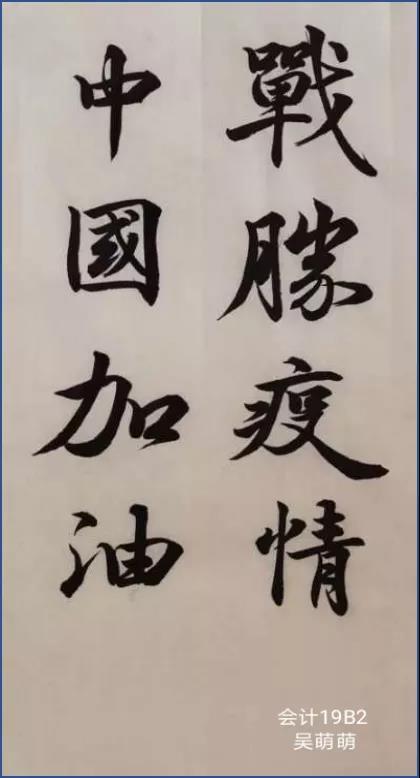 戰勝疫情
中國加油
会计19B2
吴萌萌